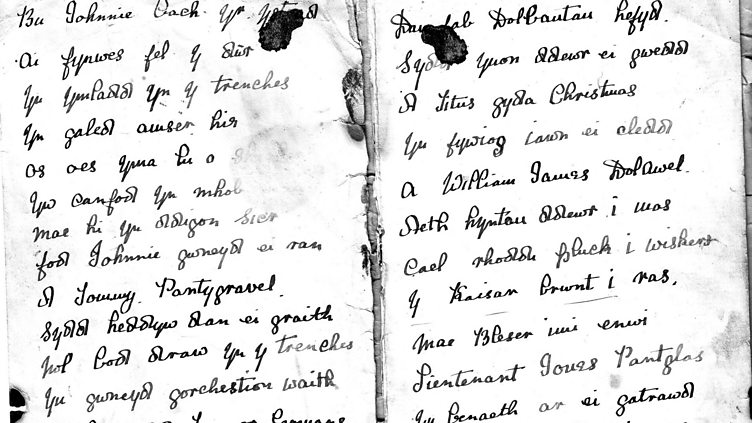 Bu Johnnie Bach Yr Ystrad
Ai fynwes fel y dûr
Yn Ymladd Yn Y trenches
Yn galed amser hir
Os oes Yma lu o
Yw canfod Yn mhob
Mae hi yn ddigon sicr
fod Johnnie gwneyd ei ran
A Tommy Pantygravel.
Sydd heddyw dan ei graith
Nol bod draw Yn Y trenches
Yn gwneyd gorchestion waith
Germans
Dau fab Dolbantau hefyd.
Sydd Yuon ddewr ei gwedd
A Titus gyda Christmas
Yn fywiog iawn ei cledd
A William James Dolawel.
Aeth hyntau ddewr i mas
Cael rhoddi pluck i wiskers
Y Kaisar brwnt i ras.
Mae Bleser imi enwi
Lientenant Jones Pantglas
Yn benaeth ar ei gatrawd